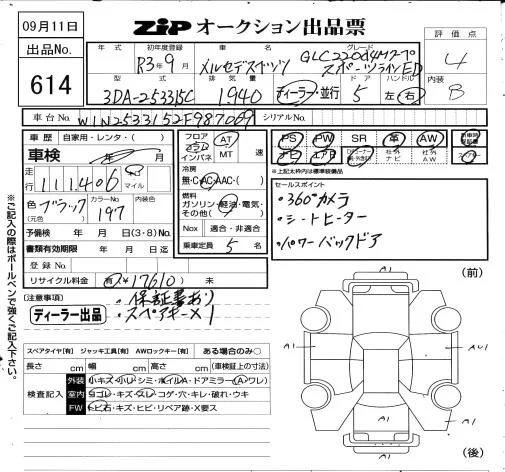 09月11日
ZiP オークション出品票
出品No.
614
評価点
4
内装
B
年式 初年度登録 車名 グレード
R3年9月 メルセデスベンツ GLC220d4Mクーペ
スポーツラインED
型式 排気量 ドア ハンドル
3DA-253315C 1940 ディーラー・並行 5 左・右
車台No. W1N2533152F987069 シリアルNo.
車歴 自家用・レンタ・( )
車検 年 月
走行 111,406 Km マイル
色(元色) ブラック カラーNo. 197 内装色
予備検 年 月 日(3・8)No.
書類有効期限 年 月 日迄
登録No.
リサイクル料金 有(¥17610) 未
フロア コラム インパネ AT MT 速
冷房 無・C・AC・AAC・( )
燃料 ガソリン・軽油・電気・その他( )
Nox 適合・非適合
乗車定員 5 名
PS PW SR 革 AW
ナビ エアB 社外ナビ 社外AW
※上記太枠内は標準装備品
セールスポイント
・360°カメラ
・シートヒーター
・パワーバックドア
[注意事項]
・保証書あり
・スペアキー×1
ディーラー出品
スペアタイヤ[有] ジャッキ工具[有] AWロックキー[有] ある場合のみ○
長さ cm 幅 cm 高さ cm (車検証上の寸法)
検査記入
外装 小キズ・小凹・シミ・ホイルA・ドアミラー(A・ワレ)
室内 ヨゴレ・キズ・スレ・コゲ・穴・キレ・破れ・ウキ
FW トビ石・キズ・ヒビ・リペア跡・X要ス
※ご記入の際はボールペンで強くご記入下さい。
(前)
A1
A1
AU1
A1
A1
A1
(後)